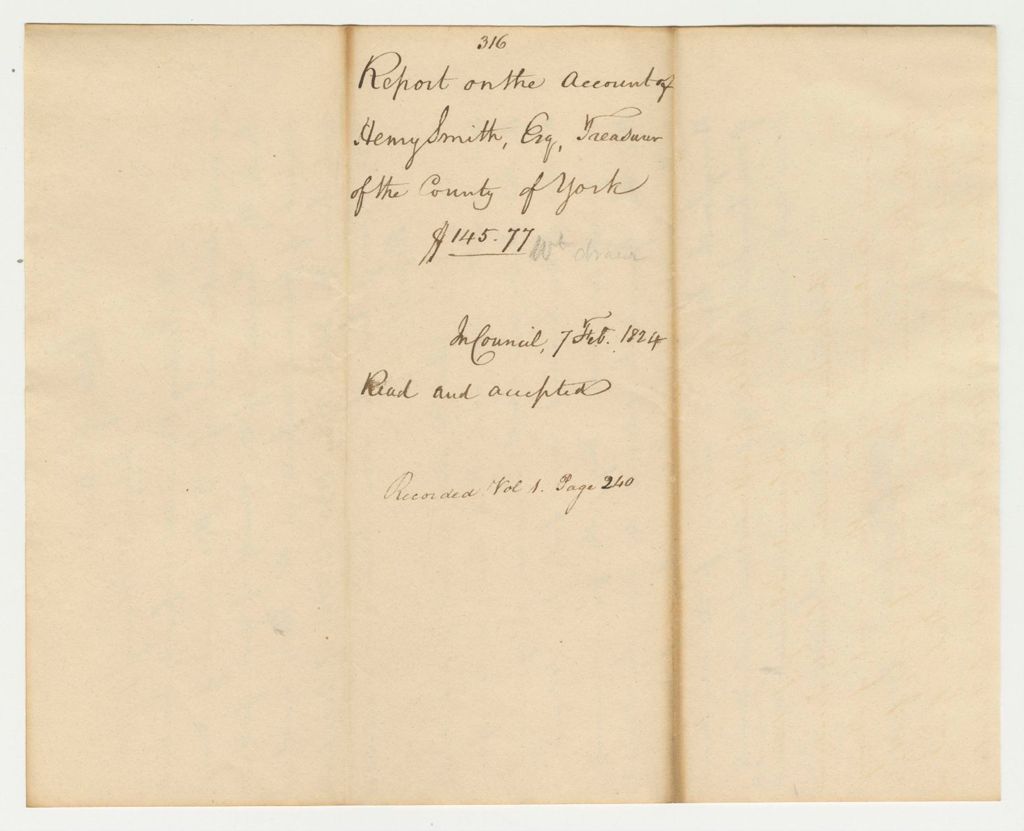 316
Report on the Account of
Henry Smith, Esq, Treasurer
of the County of York
$145.77
In Council, 7 Feb. 1824
Read and accepted
Recorded Vol 1. Page 240